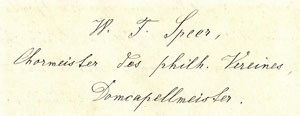 W. T. Speer,
Chormeister des philh. Vereines,
Domcapellmeister.